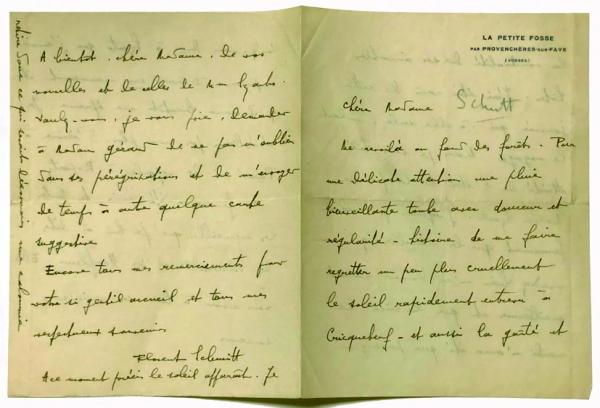 LA PETITE FOSSE
PAR PROVENCHÈRES-SUR-FAVE
(VOSGES)
Chère Madame Schmitt
Me revoilà au fond des forêts. Par
une délicate attention une pluie
bienveillante tombe avec douceur et
régularité - histoire de me faire
regretter un peu plus cruellement
le soleil rapidement entrevu à
Cricquebœuf - et aussi la gaîté et
A bientôt, chère Madame, de vos
nouvelles et de celles de Mme
Voulez-vous, je vous prie, demander
à Madame Gérard de ne pas m'oublier
dans ses pérégrinations et de m'envoyer
de temps à autre quelque carte
suggestive
Encore tous mes remerciements pour
votre si gentil accueil et tous mes
respectueux souvenirs
Florent Schmitt
A ce moment précis le soleil apparaît. Je
retire donc ce qui serait désormais une calomnie